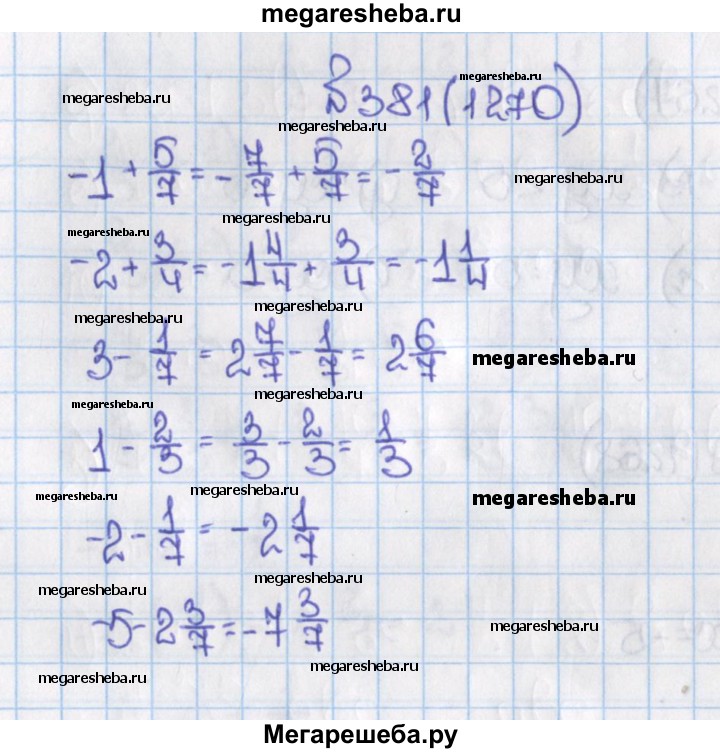 megaresheba.ru
№381(1270)
megaresheba.ru
megaresheba.ru
megaresheba.ru
-1 + 5/7 = - 7/7 + 5/7 = - 2/7
megaresheba.ru
megaresheba.ru
megaresheba.ru
-2 + 3/4 = -1 4/4 + 3/4 = -1 1/4
megaresheba.ru
megaresheba.ru
3 - 1/7 = 2 7/7 - 1/7 = 2 6/7
megaresheba.ru
megaresheba.ru
megaresheba.ru
1 - 2/3 = 3/3 - 2/3 = 1/3
megaresheba.ru
megaresheba.ru
megaresheba.ru
-2 - 1/7 = -2 1/7
megaresheba.ru
megaresheba.ru
-5 - 2 3/7 = -7 3/7
megaresheba.ru
megaresheba.ru
megaresheba.ru
Мегарешеба.ру